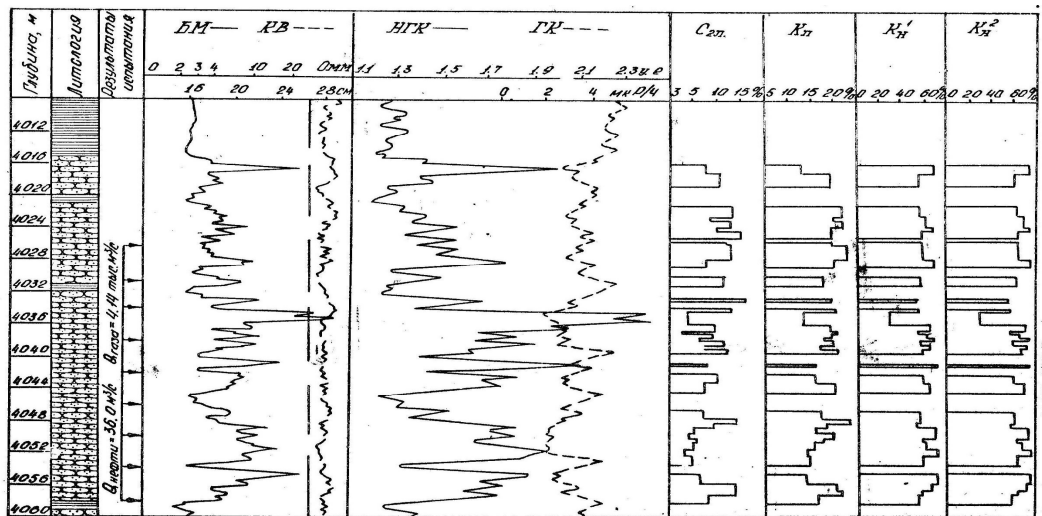 Глубина, м
Литология
Результаты испытания
БМ КВ
НГК ГК
Сгл.
Кп
Кн¹
Кн²
0 2 3 4 10 20 Омм
16 20 24 28 см
1.1 1.3 1.5 1.7 1.9 2.1 2.3 у.е
0 2 4 мкР/ч
3 5 10 15%
5 10 15 20%
0 20 40 60%
0 20 40 60%
4012
4016
4020
4024
4028
4032
4036
4040
4044
4048
4052
4056
4060
Qгаза = 4,14 тыс. м³/с
Qнефти = 36,0 м³/с